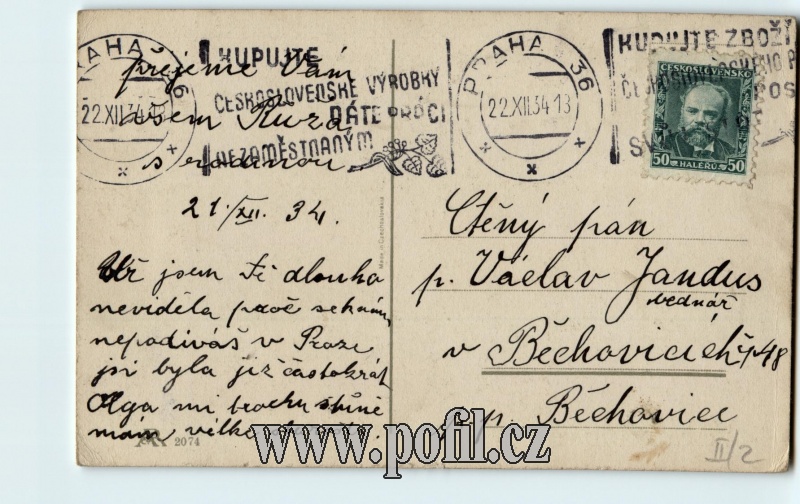 PRAHA 36
22.XII.34
KUPUJTE
ČESKOSLOVENSKÉ VÝROBKY
DÁTE PRÁCI
NEZAMĚSTNANÝM
PRAHA 36
22.XII.34 13
KUPUJTE ZBOŽÍ
ČESKOSLOVENSKO
50 HALÉŘŮ 50
přejeme Vám
všem Růža
s rodinou
21./XII. 34.
Made in Czechoslovakia
Už jsem Tě dlouho
neviděla proč se k nám
nepodíváš v Praze
jsi byla již častokrát
Olga mi trochu stůně
mám velké
2074
Ctěný pán
p. Václav Jandus
bednář
v Běchovicích č. 48
p. Běchovice
II/2
www.pofil.cz